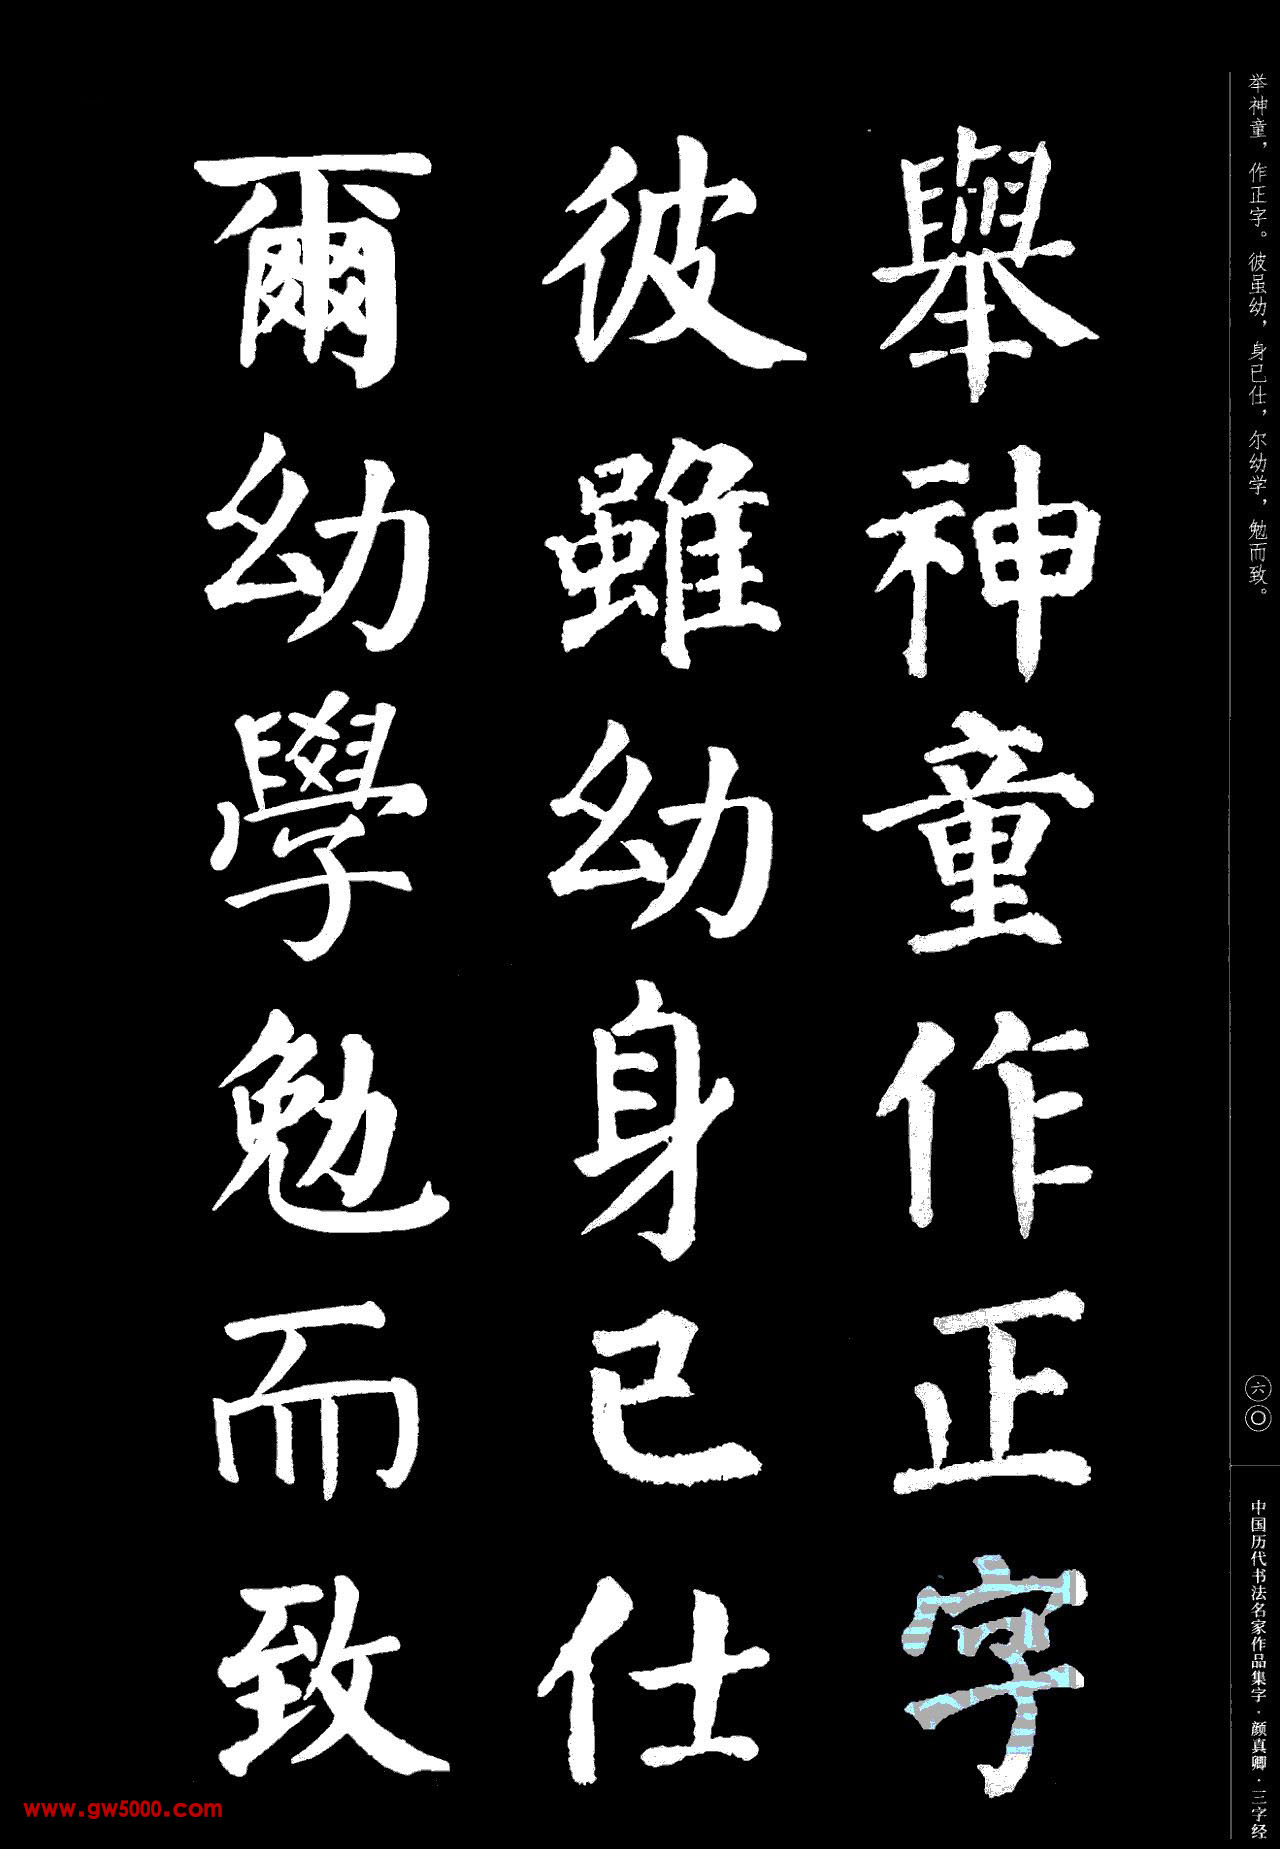 举神童，作正字。彼虽幼，身已仕，尔幼学，勉而致。
六〇
中国历代书法名家作品集字·颜真卿·三字经
舉神童作正字
彼雖幼身已仕
爾幼學勉而致
www.gw5000.com